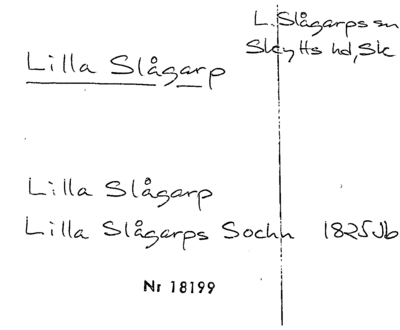 L. Slågarps sn
Skytts hd, Sk
Lilla Slågarp
Lilla Slågarp
Lilla Slågarps Sochn 1825 Jb
Nr 18199